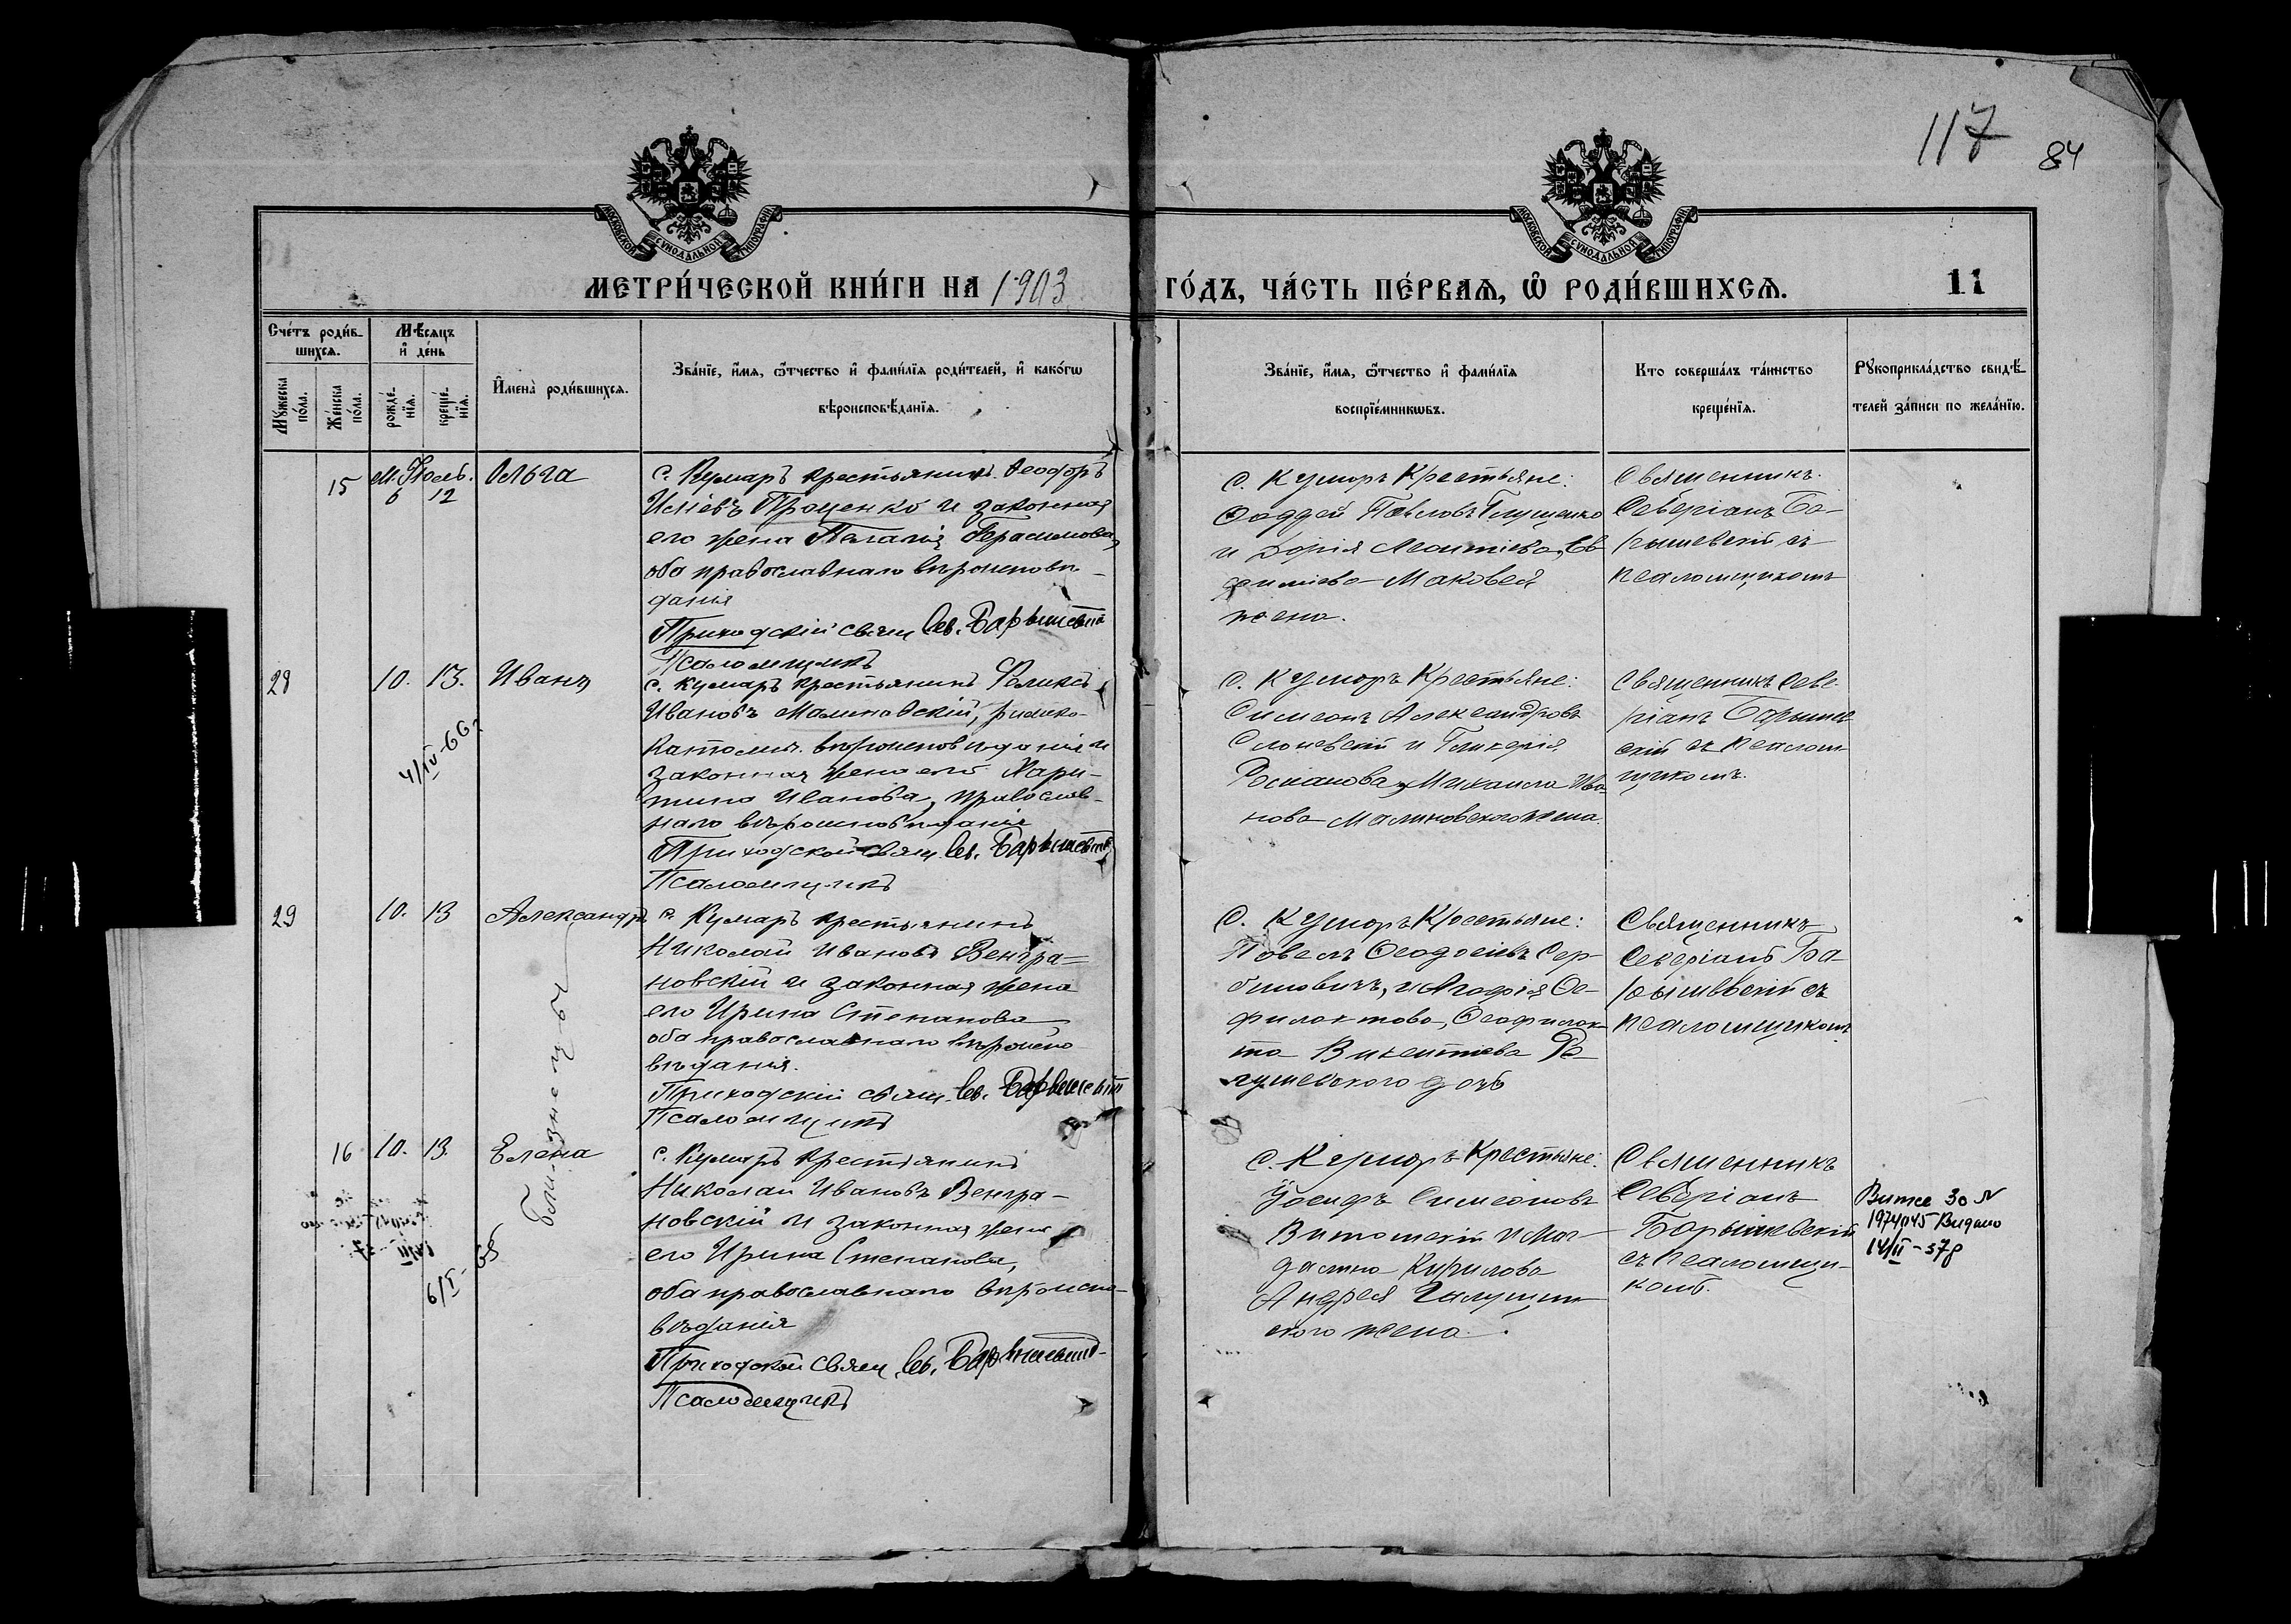 117
84
МОСКОВСКОЙ СУНОДАЛЬНОЙ ТИПОГРАФІИ
МОСКОВСКОЙ СУНОДАЛЬНОЙ ТИПОГРАФІИ
МЕТРИ́ЧЕСКОЙ КНИ́ГИ НА 1903
ГО́ДЪ, ЧА́СТЬ ПЕ́РВАѦ, Ѡ҆ РОДИ́ВШИХСѦ.
11
Сче́тъ роди́в-
шихсѧ.
Мꙋжеска по́ла.
Же́нска по́ла.
Мѣ́сѧцъ
и҆ де́нь
рожде́-
нїѧ.
креще́-
нїѧ.
И҆мена̀ роди́вшихсѧ.
Зва́нїе, и҆́мѧ, ѻ҆́тчество и҆ фами́лїѧ роди́телей, и҆ како́гѡ
вѣроисповѣ́данїѧ.
Зва́нїе, и҆́мѧ, ѻ҆́тчество и҆ фами́лїѧ
воспрїе́мникѡвъ.
Кто соверша́лъ та́инство
креще́нїѧ.
Рꙋкоприкла́дство свидѣ́-
телей за́писи по жела́нїю.
15
М. Іюль.
6 12
Ольга
с. Кумаръ крестьянинъ Ѳеодоръ
Иліевъ Проценко и законная
его жена Пелагія Герасимова,
оба православнаго вѣроисповѣ-
данія
Приходскій свящ. Сев. Барышевскій
Псаломщикъ
с. Кумаръ Крестьяне:
Ѳаддей Павловъ Глущенко
и Дорія Леонтіева, Ев-
фиміева Маковея
жена.
Священникъ
Северіанъ Ба-
рышевскій съ
псаломщикомъ
28
10. 13.
Иванъ
с. Кумаръ крестьянинъ Феликсъ
Ивановъ Малиновскій, римско-
католич. вѣроисповѣданія и
законная жена его Хари-
тина Иванова, православ-
наго вѣроисповѣданія
Приходской свящ. Сев. Барышевскій
Псаломщикъ
4/IV-66
с. Кумаръ Крестьяне:
Симеонъ Александровъ
и Гликерія
Романова, Михаила Ива-
нова Малиновскаго жена.
Священникъ Севе-
ріанъ Барышев
скій съ псалом-
щикомъ.
29
10. 13
Александръ
с. Кумаръ крестьянинъ
Николай Ивановъ Венгра-
новскій и законная жена
его Ирина Степанова
оба православнаго вѣроиспо-
вѣданія.
Приходскій свящ. Сев. Барышевскій
Псаломщикъ
близнецы
с. Кумаръ Крестьяне:
Павелъ Ѳеодосіевъ Сер-
биновичъ, и Агафія Ѳе-
филактова, Ѳеофилак-
та Викентіева
дочь
Священникъ
Северіанъ Ба-
рышевскій съ
псаломщикомъ
16
10. 13.
Елена
с. Кумаръ крестьянинъ
Николай Ивановъ Венгра-
новскій и законная жена
его Ирина Степанова,
оба православнаго вѣроиспо-
вѣданія
Приходской свящ. Сев. Барышевскій
Псаломщикъ
6/I-65
с. Кумаръ Крестьяне:
Іосифъ Симеоновъ
и Маг-
далина Кирилова
Андрея
скаго жена.
Священникъ
Северіанъ
Барышевскій
съ псаломщи-
комъ.
Витяг За №
1974045 Видано
14/II-37р